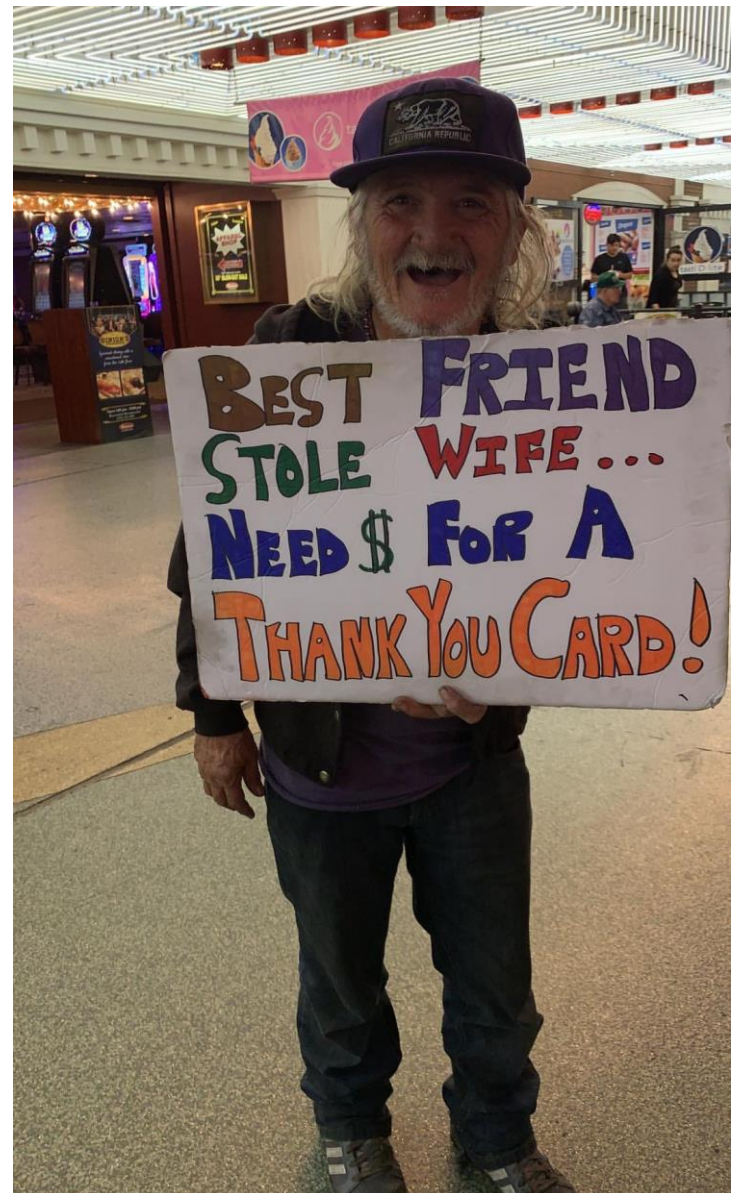 CALIFORNIA REPUBLIC
BEST FRIEND
STOLE WIFE...
NEED $ FOR A
THANK YOU CARD!